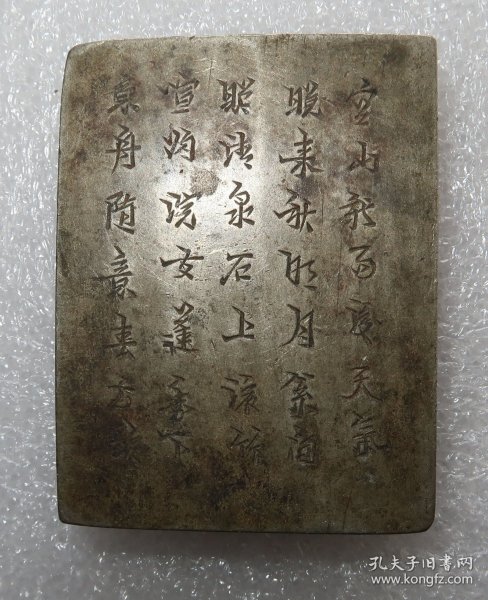 空山新雨後天氣
晚来秋明月松間
照清泉石上流竹
喧歸浣女蓮動下
魚舟隨意春方歇
孔夫子旧书网
www.kongfz.com